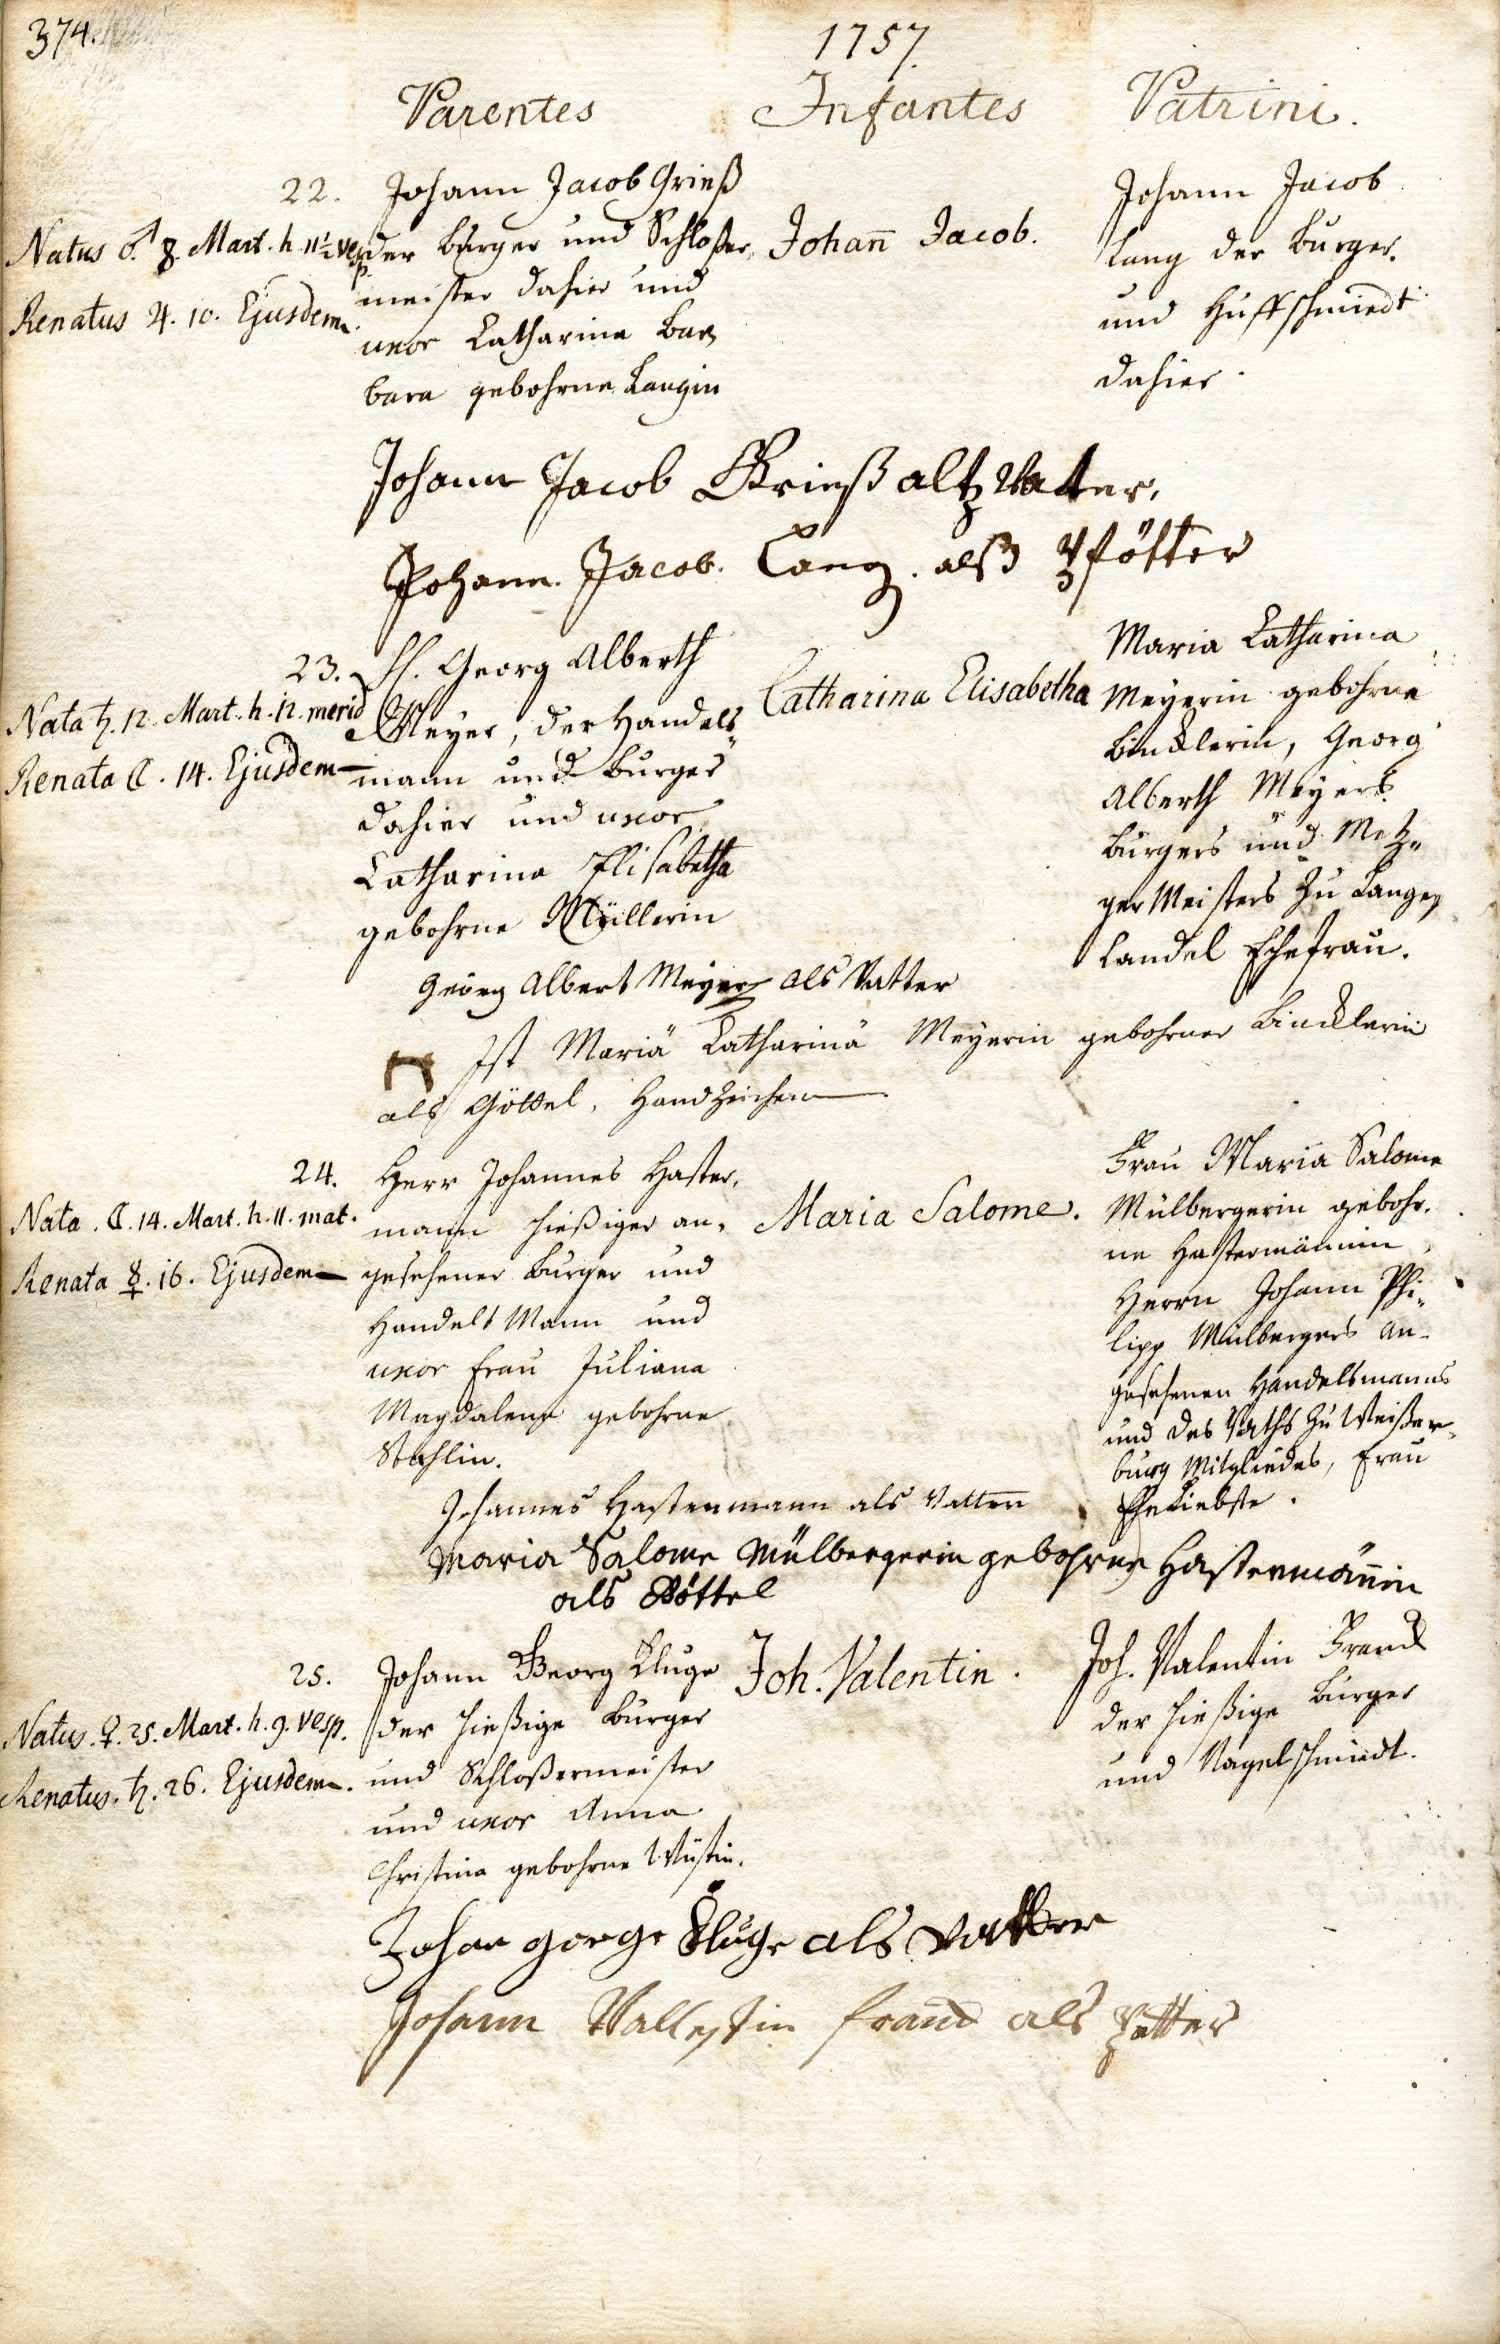 374.
1757.
Parentes Infantes Patrini.
22.
Natus ♂. 8. Mart. h. 11½ vesp.
Renatus ♃. 10. Ejusdem.
Johann Jacob Grieß
der Burger und Schloßer,
meister dahier und
uxor Catharina Bar,
bara gebohrne Langin
Johann Jacob.
Johann Jacob
Lang der Burger.
und Huffschmiedt
dahier.
Johann Jacob Grieß alß Vatter,
Johann. Jacob. Lang. alß Pfötter
23.
Nata ♄. 12. Mart. h. 12. merid
Renata ☾. 14. Ejusdem
H. Georg Alberth
Meyer, der Handels„
mann und Burger
dahier und uxor
Catharina Elisabetha
gebohrne Müllerin
Catharina Elisabetha
Maria Catharina
Meyerin gebohrne
Bincklerin, Georg
Alberth Meyers
Burgers und Metz„
ger Meisters zu Langen
Candel Ehefrau.
Georg Albert Meyer als Vatter
Ist Mariä Catharinä Meyerin gebohrner Bincklerin
als Göttel, Handzeichen
24.
Nata. ☾. 14. Mart. h. 11. mat.
Renata ☿. 16. Ejusdem
Herr Johannes Haster,
mann hießiger an,
gesehener Burger und
Handels Mann und
uxor Frau Juliana
Magdalena gebohrne
Stahlin.
Maria Salome.
Frau Maria Salome
Mülbergerin gebohr,
ne Hastermännin,
Herrn Johann Phi„
lipp Mülbergers an-
gesehenen Handelsmanns
und des Raths zu Weißen,
burg Mitgliedes, Frau
Eheliebste.
Johannes Hastermann als Vatter
Maria Salome Mülbergerin gebohrne Hastermännin
als Göttel
25.
Natus. ♀. 25. Mart. h. 9. vesp.
Renatus. ♄. 26. Ejusdem.
Johann Georg Kluge
der hießige Burger
und Schloßermeister
und uxor Anna
Christina gebohrne Wüstin.
Joh. Valentin.
Joh. Valentin Franck
der hießige Burger
und Nagelschmiedt.
Johan gorge Kluge als Vatter
Johann Vallentin Franck als Pfetter